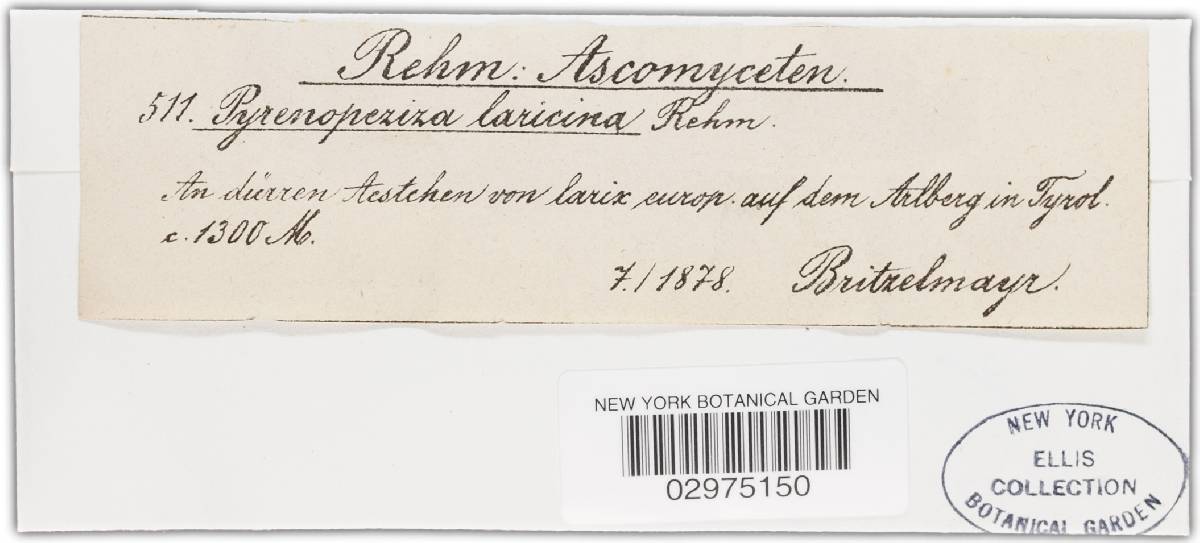 Rehm: Ascomyceten.
511. Pyrenopeziza laricina Rehm.
An dürren Aestchen von larix europ. auf dem Arlberg in Tyrol.
c. 1300 M.
7./1878. Britzelmayr.
NEW YORK BOTANICAL GARDEN
02975150
NEW YORK
ELLIS
COLLECTION
BOTANICAL GARDEN